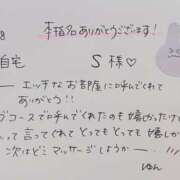 本指名ありがとうございます!
8
自宅 S様♡
エッチなお部屋に呼んでくれて
ありがとう!!
グコースで呼んでくれたのも嬉しかったけど
って言ってくれて とっても とっても 嬉しか
次はどこマッサージしようかー・・・!!